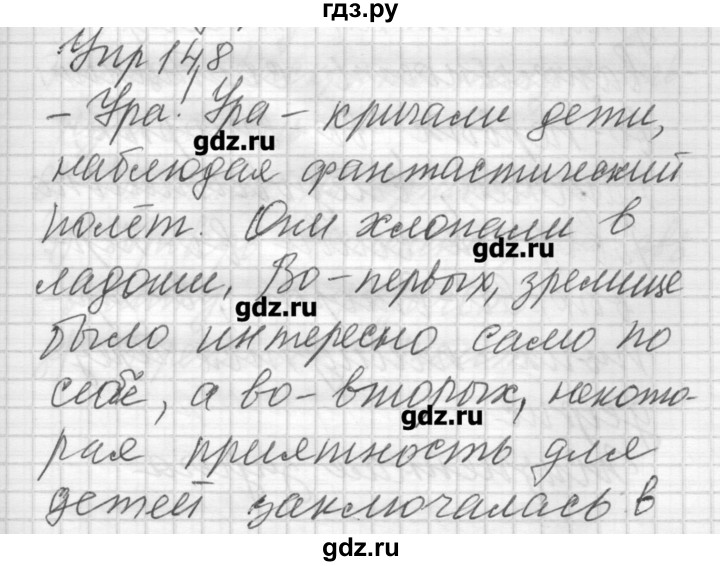 гдз.ру
Упр 148
- Ура! Ура - кричали дети,
gdz.ru
наблюдая фантастический
полёт. Они хлопали в
gdz.ru
ладоши, Во-первых, зрелище
gdz.ru
было интересно само по
себе, а во-вторых, некото-
gdz.ru
рая приятность для
детей заключалась в
gdz.ru